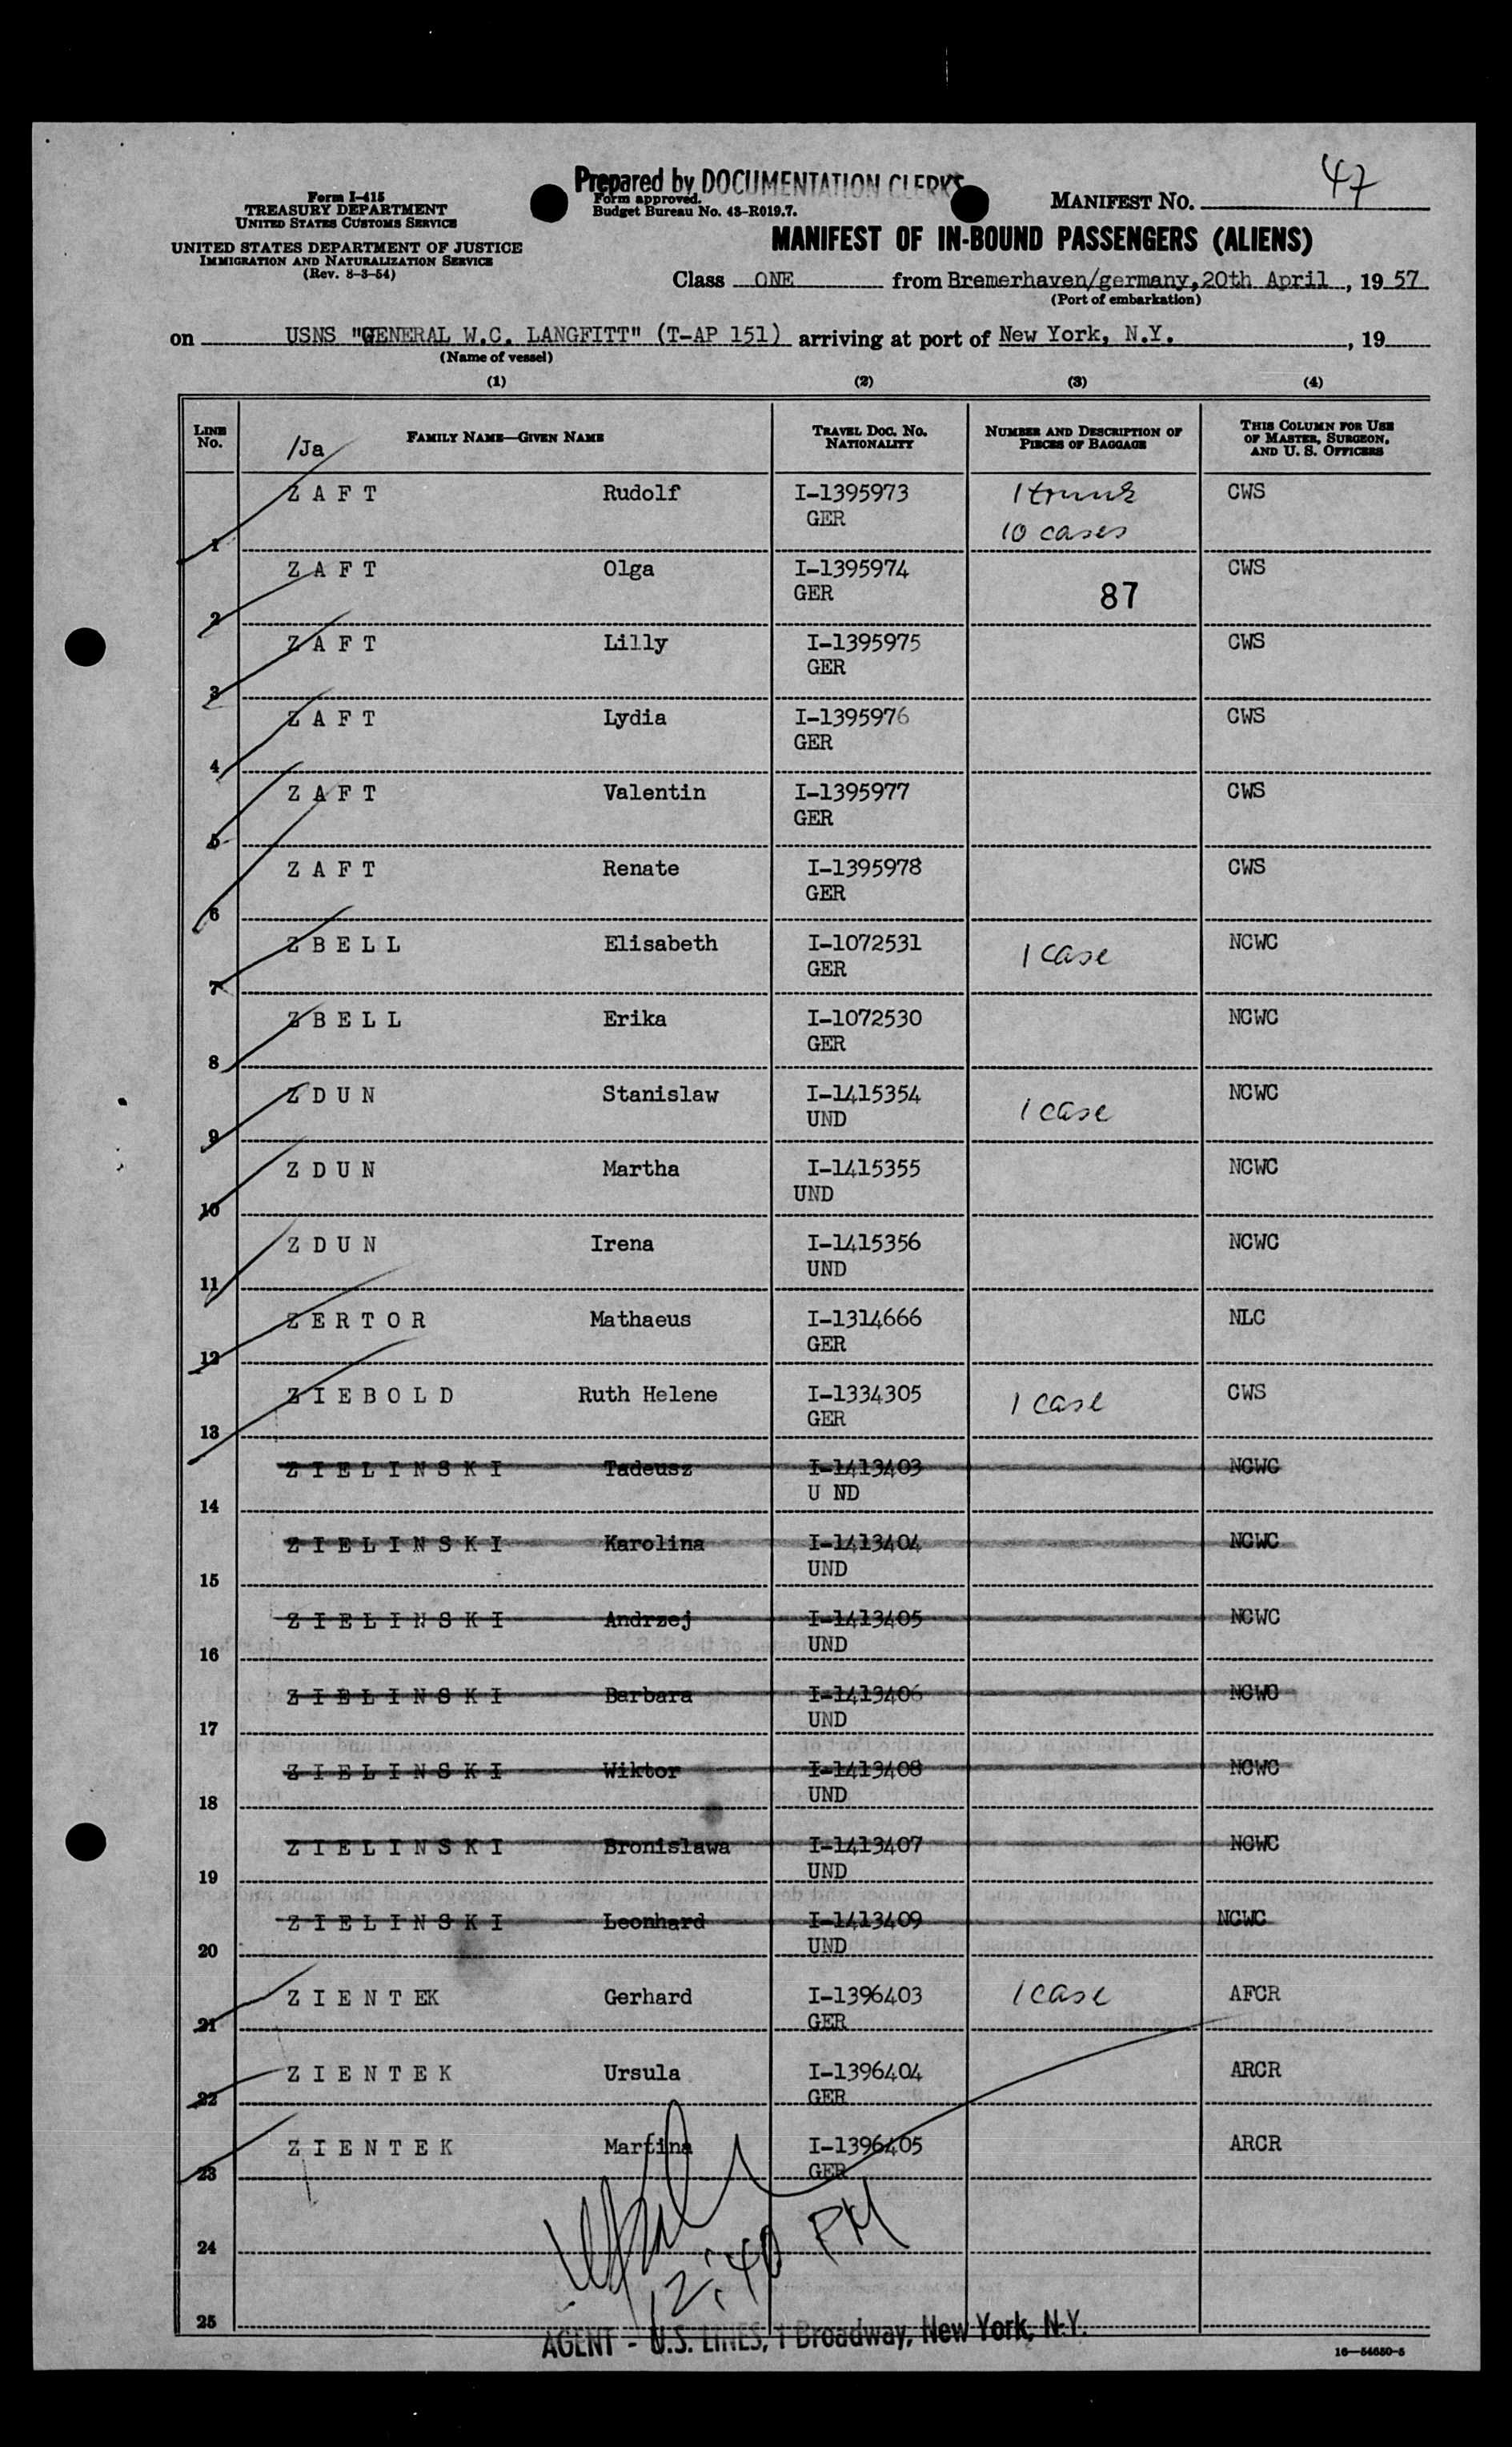 Prepared by DOCUMENTATION CLERKS
Form approved.
Budget Bureau No. 43-R019.7.
Form I-415
TREASURY DEPARTMENT
UNITED STATES CUSTOMS SERVICE
UNITED STATES DEPARTMENT OF JUSTICE
IMMIGRATION AND NATURALIZATION SERVICE
(Rev. 8-3-54)
MANIFEST NO. 47
MANIFEST OF IN-BOUND PASSENGERS (ALIENS)
Class ONE from Bremerhaven/germany,20th April, 1957
(Port of embarkation)
on USNS "GENERAL W.C. LANGFITT" (T-AP 151) arriving at port of New York, N.Y., 19
(Name of vessel)
(1) (2) (3) (4)
LINE No. FAMILY NAME—GIVEN NAME TRAVEL DOC. NO. NATIONALITY NUMBER AND DESCRIPTION OF PIECES OF BAGGAGE THIS COLUMN FOR USE OF MASTER, SURGEON, AND U. S. OFFICERS
/Ja
1 Z A F T Rudolf I-1395973 GER 1 trunk 10 cases CWS
2 Z A F T Olga I-1395974 GER 87 CWS
3 Z A F T Lilly I-1395975 GER CWS
4 Z A F T Lydia I-1395976 GER CWS
5 Z A F T Valentin I-1395977 GER CWS
6 Z A F T Renate I-1395978 GER CWS
7 Z B E L L Elisabeth I-1072531 GER 1 case NCWC
8 Z B E L L Erika I-1072530 GER NCWC
9 Z D U N Stanislaw I-1415354 UND 1 case NCWC
10 Z D U N Martha I-1415355 UND NCWC
11 Z D U N Irena I-1415356 UND NCWC
12 Z E R T O R Mathaeus I-1314666 GER NLC
13 Z I E B O L D Ruth Helene I-1334305 GER 1 case CWS
14 Z I E L I N S K I Tadeusz I-1413403 U ND NCWC
15 Z I E L I N S K I Karolina I-1413404 UND NCWC
16 Z I E L I N S K I Andrzej I-1413405 UND NCWC
17 Z I E L I N S K I Barbara I-1413406 UND NCWC
18 Z I E L I N S K I Wiktor I-1413408 UND NCWC
19 Z I E L I N S K I Bronislawa I-1413407 UND NCWC
20 Z I E L I N S K I Leonhard I-1413409 UND NCWC
21 Z I E N T EK Gerhard I-1396403 GER 1 case AFCR
22 Z I E N T E K Ursula I-1396404 GER ARCR
23 Z I E N T E K Martina I-1396405 GER ARCR
24
12:40 PM
25
AGENT - U.S. LINES, 1 Broadway, New York, N.Y.
16—54650-5